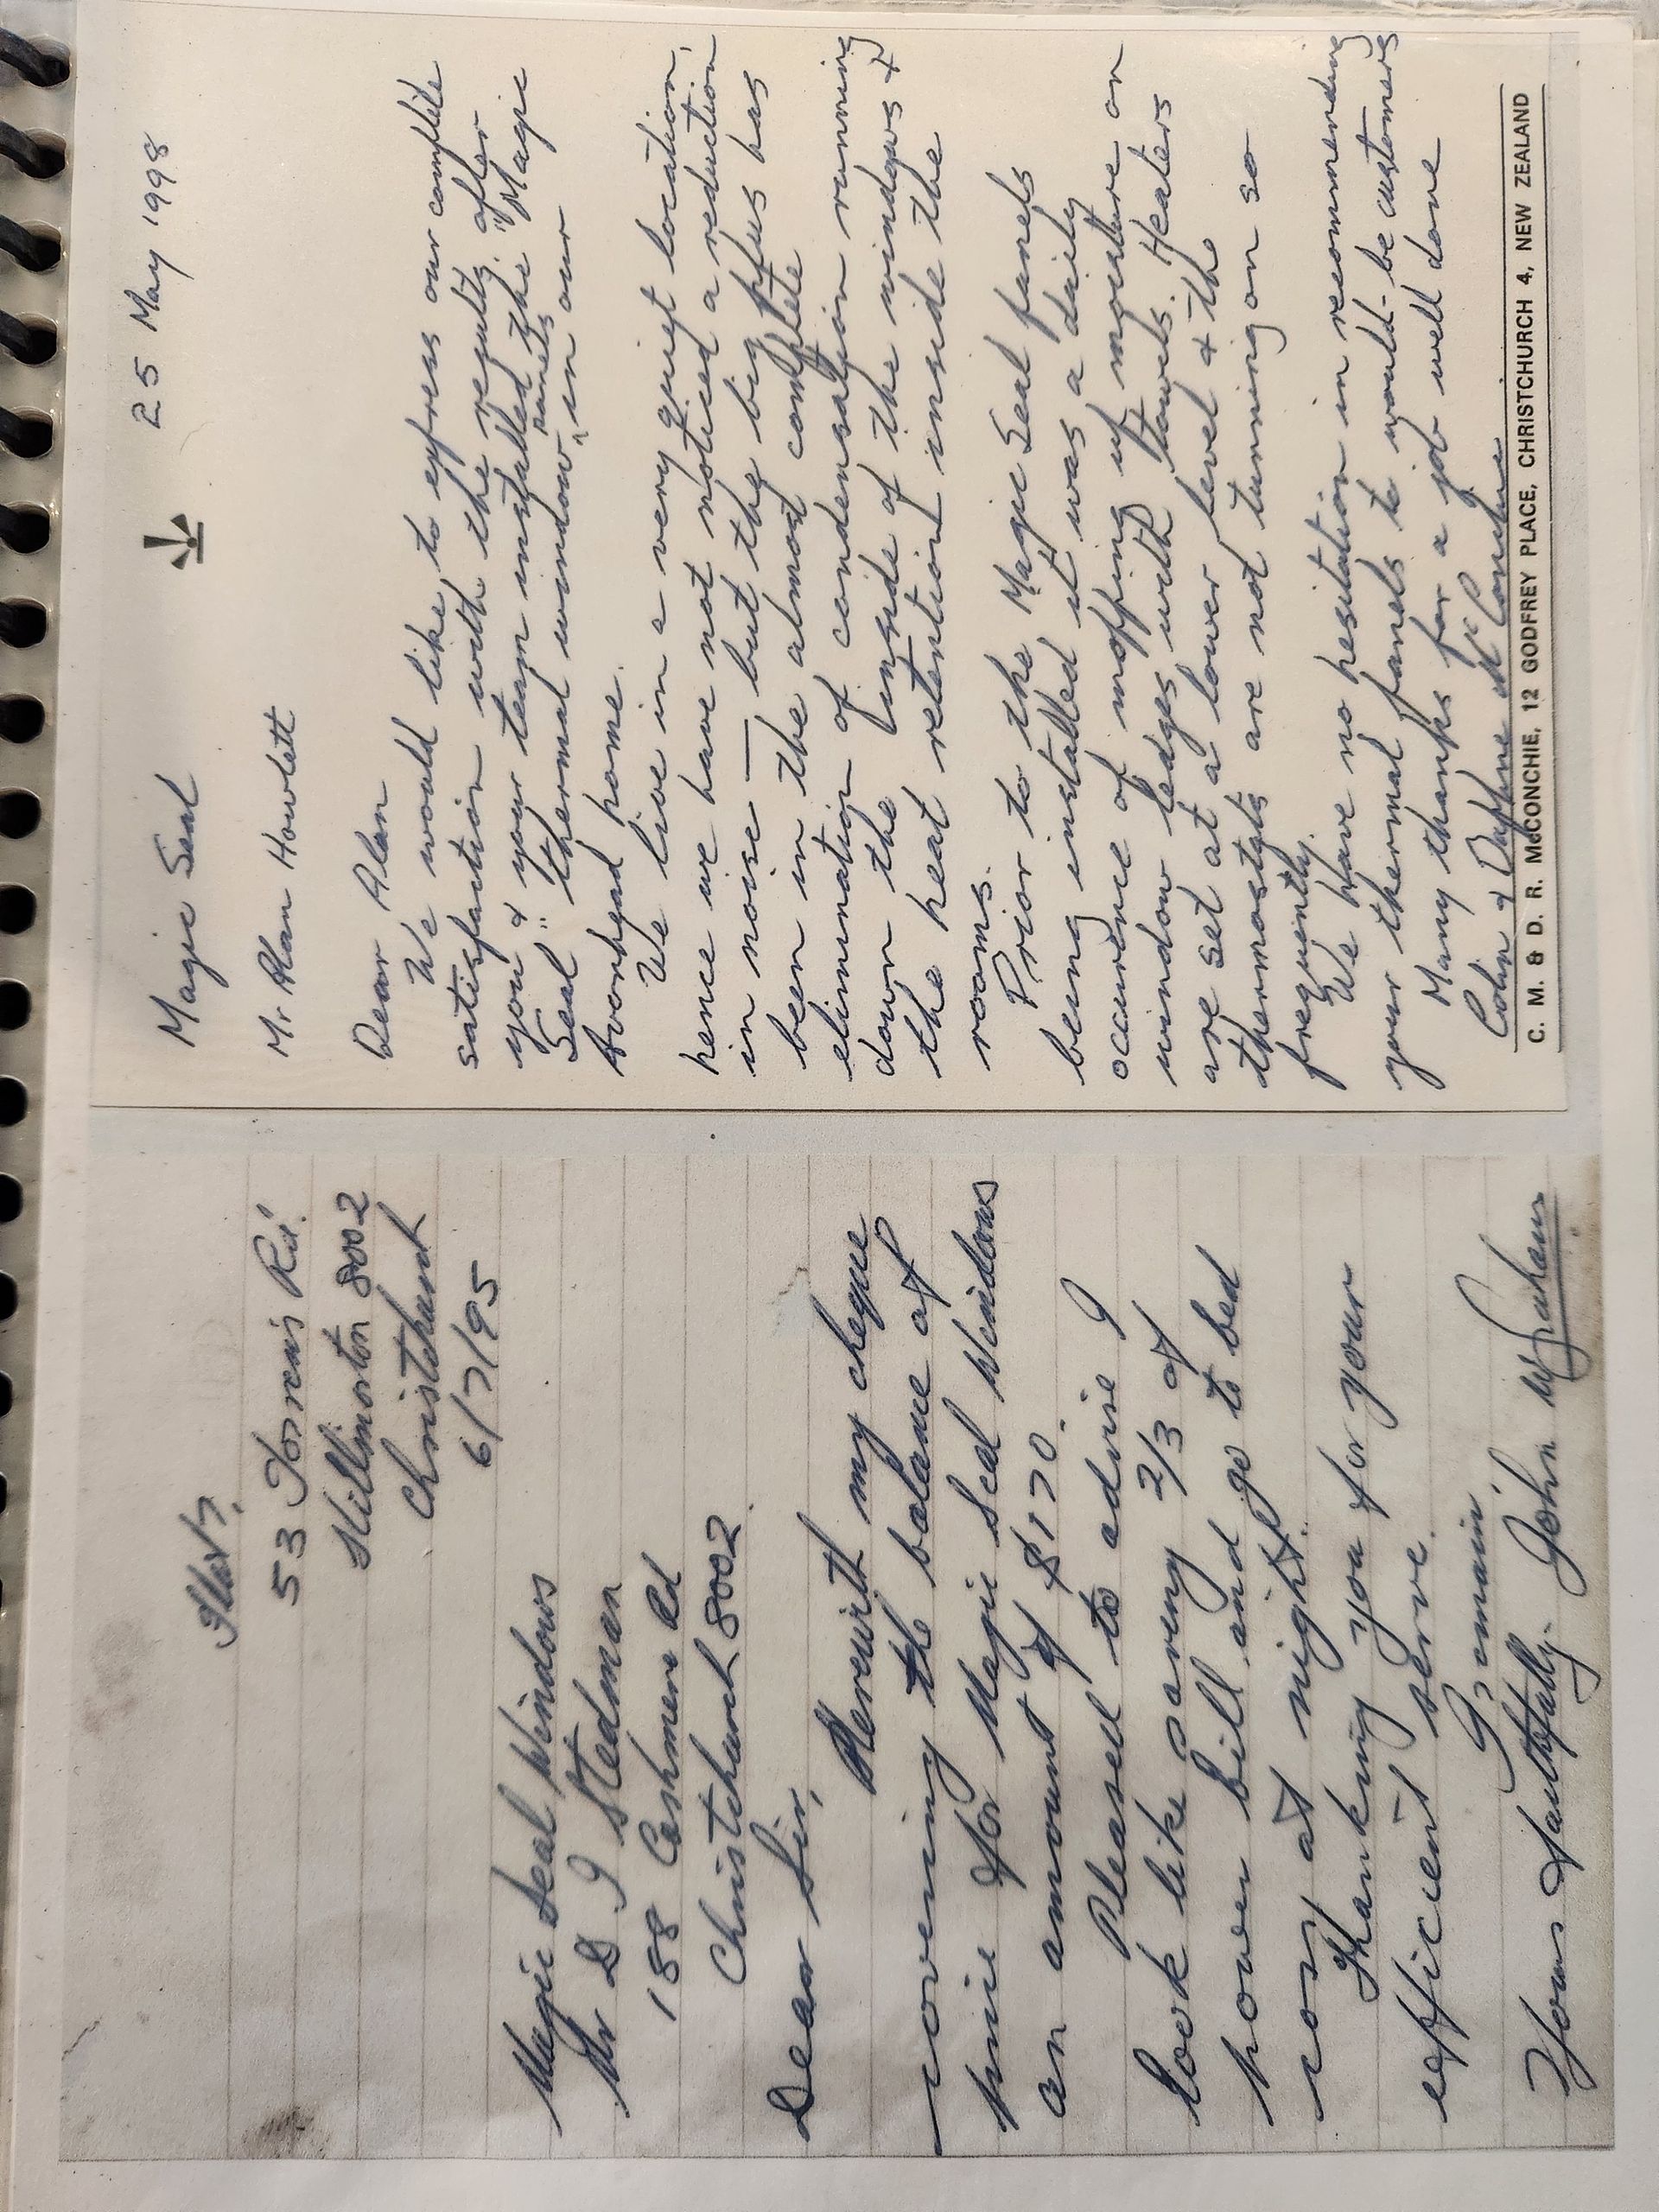 Flat 7,
53 Torrens Rd.
Hillmorton 8002
Christchurch
6/7/95
Magic Seal Windows
Mr D. J Stedman
188 Cashmere Rd
Christchurch 8002.
Dear Sir,
Herewith my cheque
covering the balance of
price for Magic Seal Windows
an amount of $170.
Pleased to advise I
look like saving 2/3 of
power bill and go to bed
cosy at night.
Thanking you for your
efficient serve.
I remain,
Yours faithfully. John W Graham
Magic Seal
25 May 1998
Mr. Alan Howlett
Dear Alan
We would like to express our complete
satisfaction with the results after
you & your team installed the "Magic
Seal" thermal window panels in our
Avonhead home.
We live in a very quiet location,
hence we have not noticed a reduction
in noise — but the big plus has
been in the almost complete
elimination of condensation running
down the inside of the windows &
the heat retention inside the
rooms.
Prior to the Magic Seal panels
being installed it was a daily
occurence of mopping up moisture on
window ledges with towels. Heaters
are set at a lower level & the
thermostats are not turning on so
frequently.
We have no hesitation in recommending
your thermal panels to would-be customers
Many thanks for a job well done
Colin & Daphne McConchie
C. M. & D. R. McCONCHIE, 12 GODFREY PLACE, CHRISTCHURCH 4, NEW ZEALAND